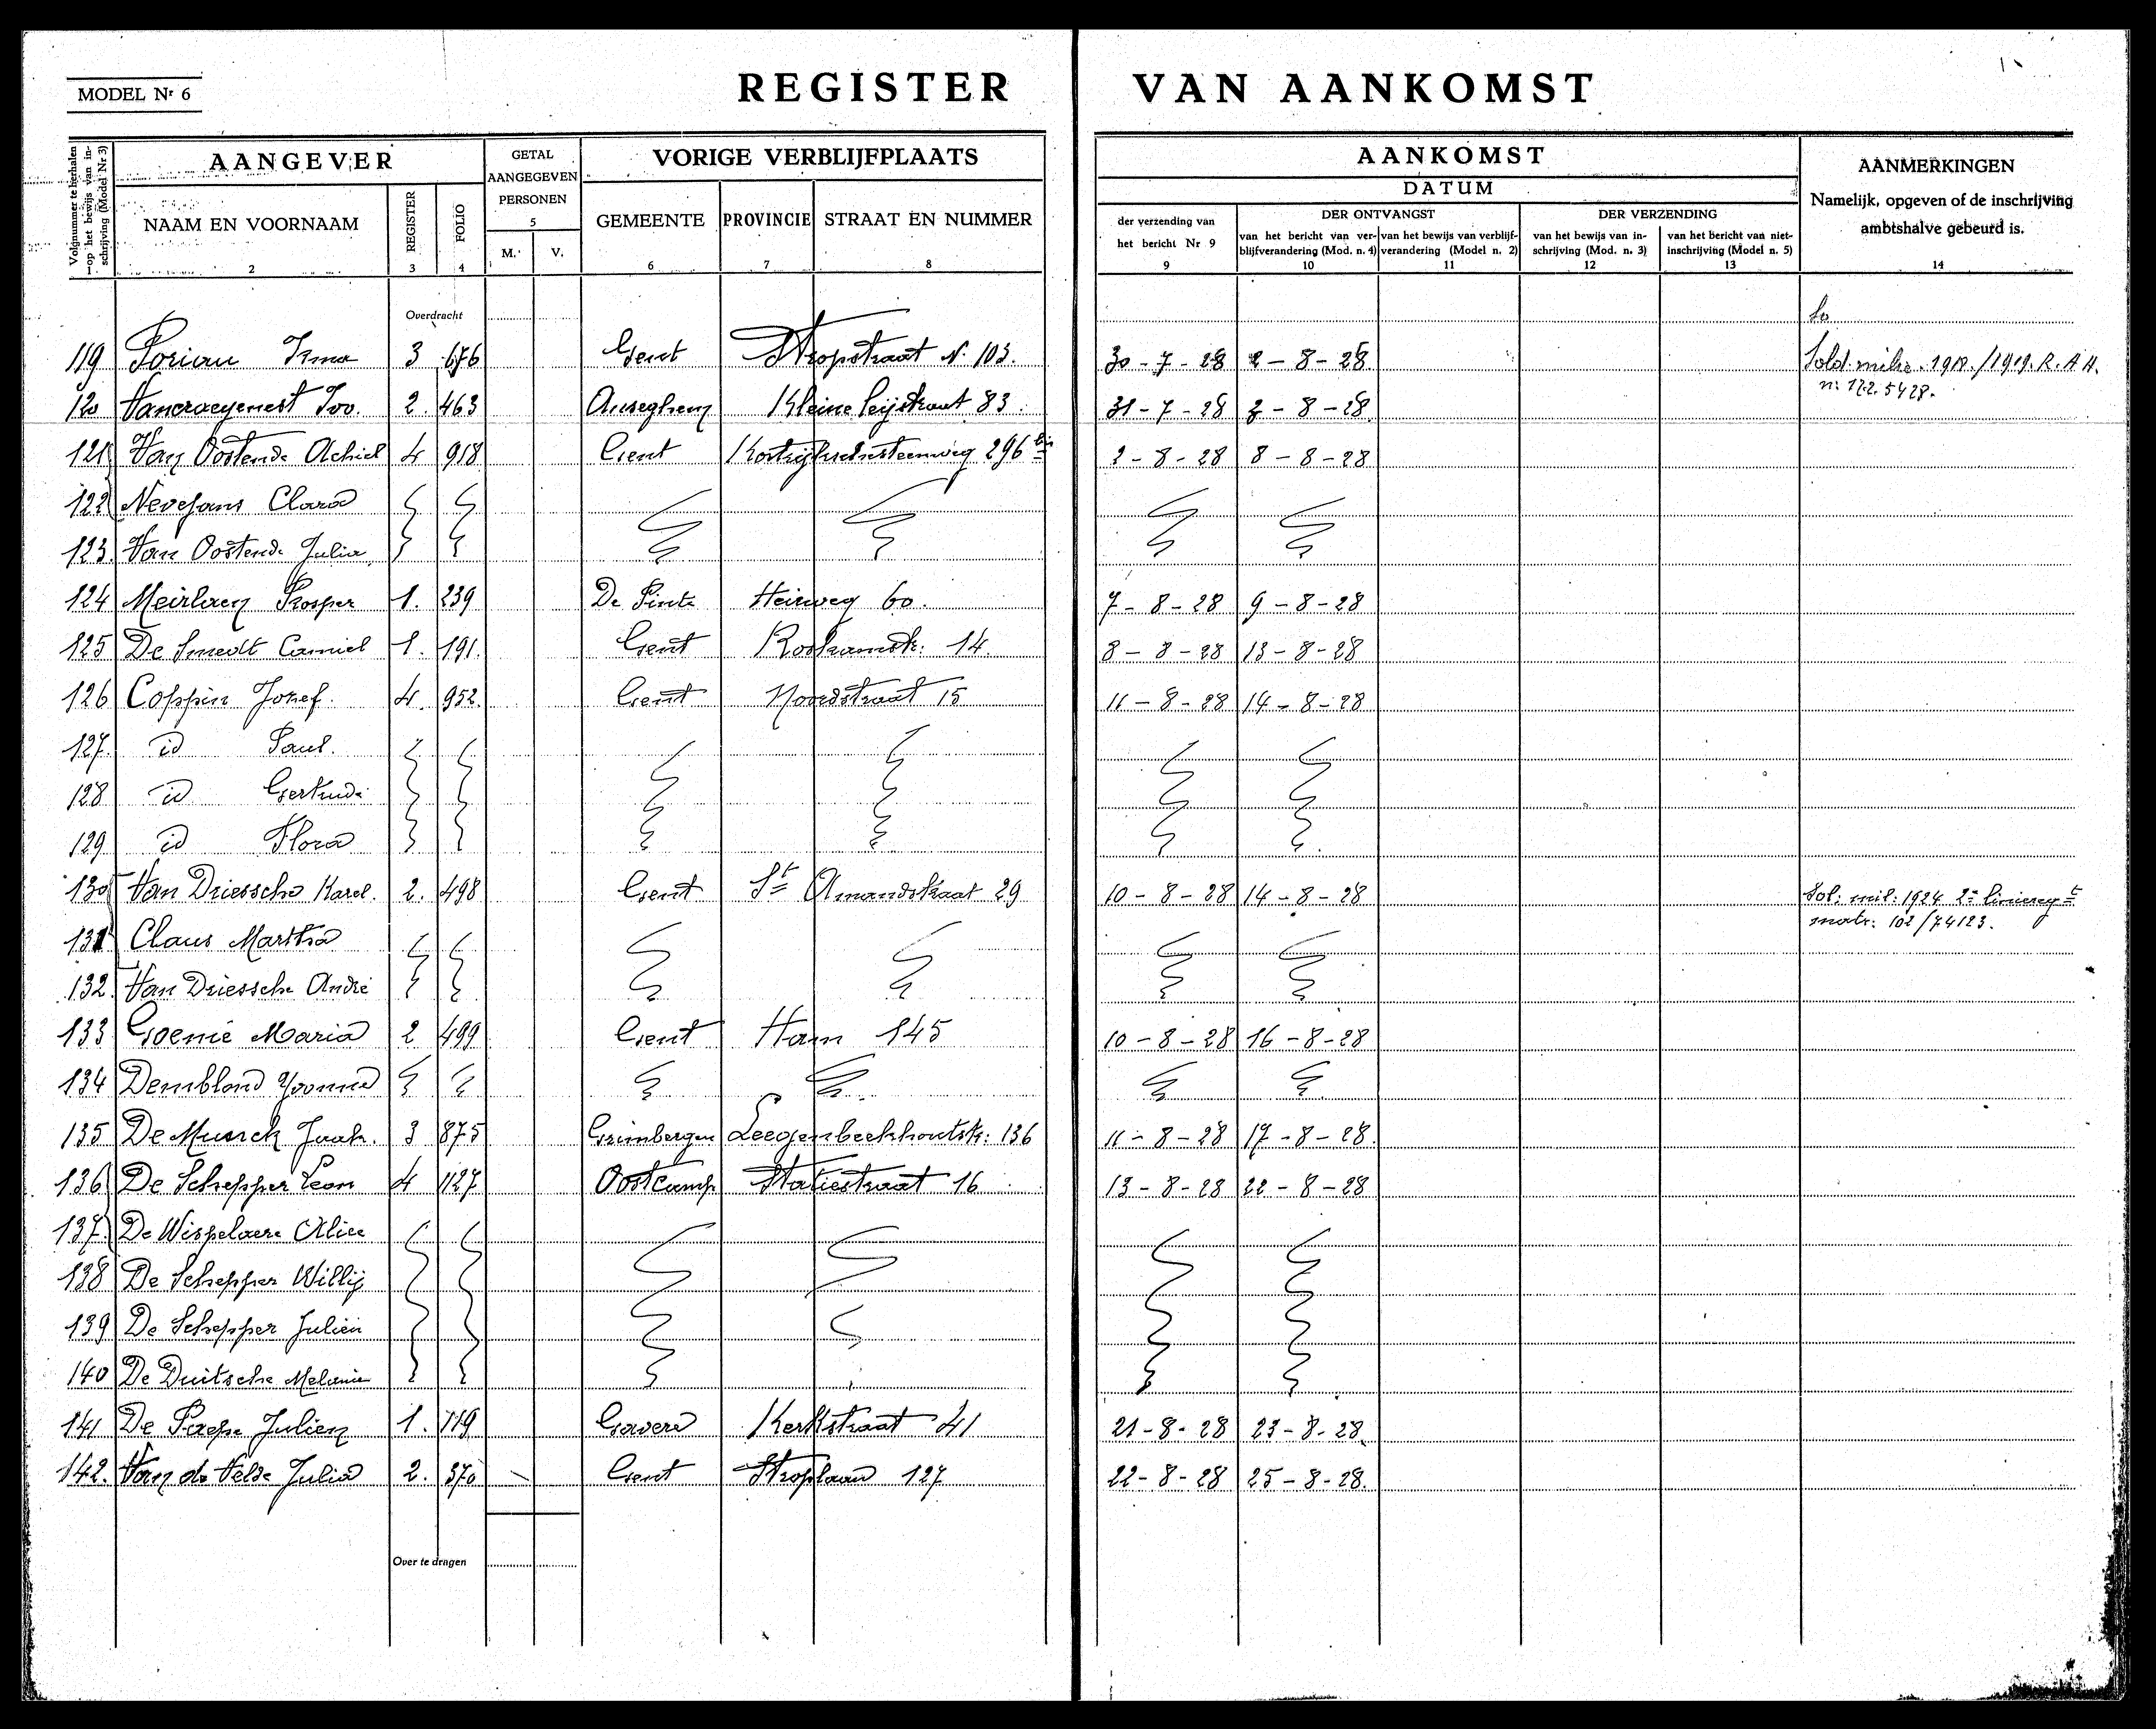 MODEL Nr 6
REGISTER VAN AANKOMST
Volgnummer te herhalen op het bewijs van inschrijving (Model Nr 3)
AANGEVER
GETAL AANGEGEVEN PERSONEN
VORIGE VERBLIJFPLAATS
AANKOMST
DATUM
AANMERKINGEN
Namelijk, opgeven of de inschrijving
ambtshalve gebeurd is.
NAAM EN VOORNAAM
REGISTER
FOLIO
5
M.
V.
GEMEENTE
PROVINCIE
STRAAT EN NUMMER
der verzending van
het bericht Nr 9
DER ONTVANGST
van het bericht van verblijfverandering (Mod. n. 4)
van het bewijs van verblijfverandering (Model n. 2)
DER VERZENDING
van het bewijs van inschrijving (Mod. n. 3)
van het bericht van niet-inschrijving (Model n. 5)
1 2 3 4 6 7 8 9 10 11 12 13 14
Overdracht
119 Irma 3 676 Gent Stropstraat N. 103. 30-7-28 2-8-28 Sold. milic. 1918./1919. R.A.H.
n: 122.5428.
120 2. 463 83. 31-7-28 2-8-28
121 Van Oostende Achiel 4 918 Gent Kortrijkschesteenweg 296 bis 2-8-28 8-8-28
122 Nevejans Clara
123. Van Oostende Julia
124 Meirlaen Prosper 1. 239 De Pinte Heirweg 60. 7-8-28 9-8-28
125 De Smedt Camiel 1. 191. Gent Roskamstr: 14. 8-8-28 13-8-28
126 Coppin Jozef. 4. 952. Gent Noordstraat 15 11-8-28 14-8-28
127. id Paul.
128 id Gertrude
129 id Flora
130 Van Driessche Karel. 2. 498 Gent St Amandstraat 29 10-8-28 14-8-28 Sol: mil: 1924 2e liniereg t
matr: 102/74123.
131 Claus Martha
132. Van Driessche André
133 Maria 2 499 Gent Ham 145 10-8-28 16-8-28
134 Demblond Yvonne
135 De Munck 3 875 Grimbergen 136 11-8-28 17-8-28.
136 De Schepper Leon 4 1127 Oostcamp Statiestraat 16 13-8-28 22-8-28
137. De Wispelaere Alice
138 De Schepper Willij
139 De Schepper Julien
140 De Duitsche Melanie
141 De Paepe Julien 1. 719 Gavere Kerkstraat 41 21-8-28 23-8-28.
142. Van de Velde Julia 2. 370 Gent Stroplaan 127 22-8-28 25-8-28.
Over te dragen